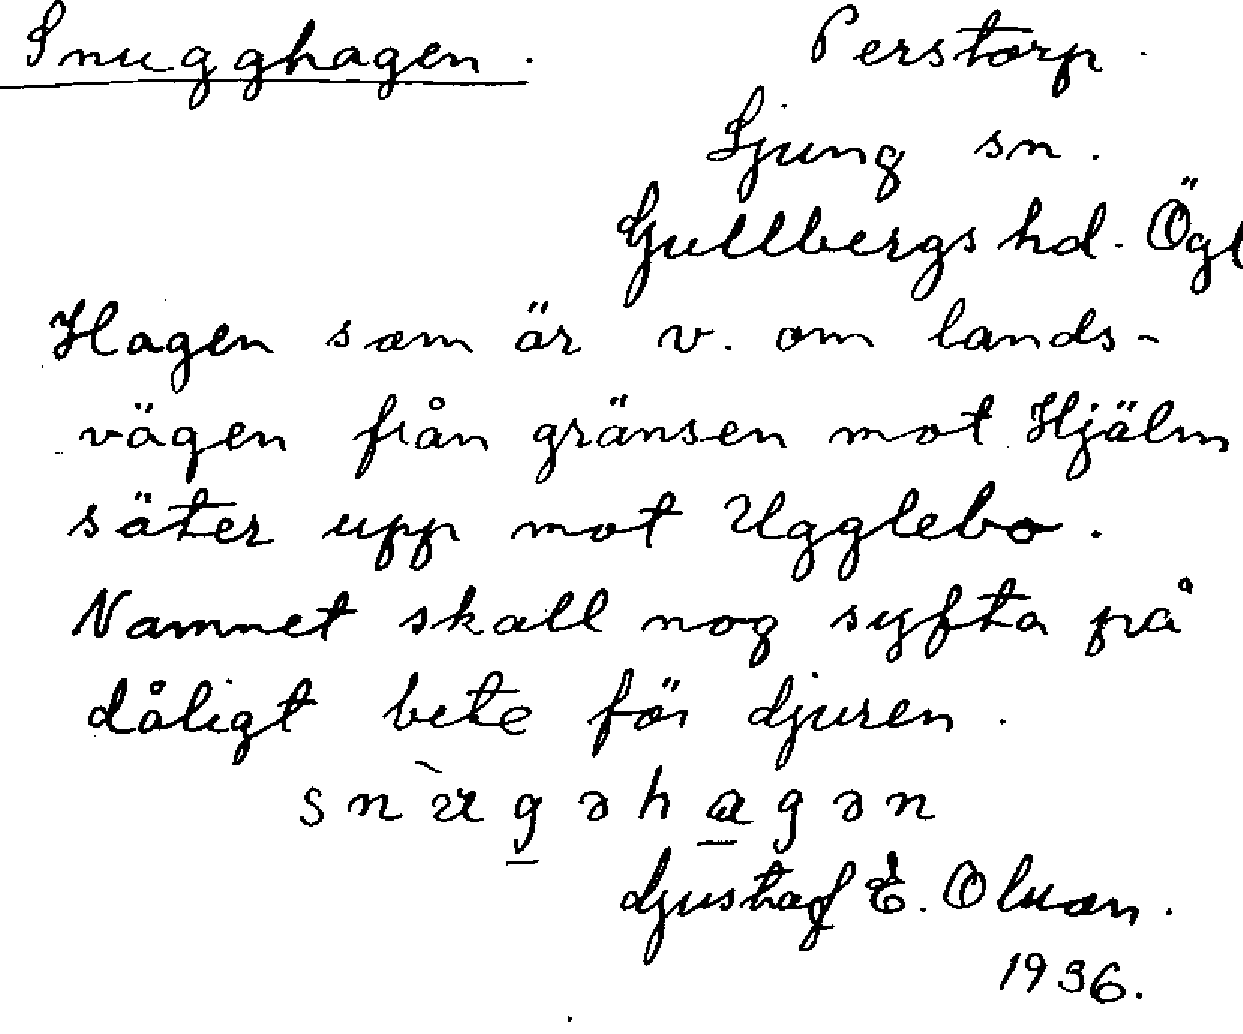 Snugghagen. Perstorp.
Ljung sn.
Gullbergs hd. Ögl
Hagen som är v. om lands-
vägen från gränsen mot Hjälm
säter upp mot Ugglebo.
Namnet skall nog syfta på
dåligt bete för djuren.
Gustaf E. Olson.
1936.